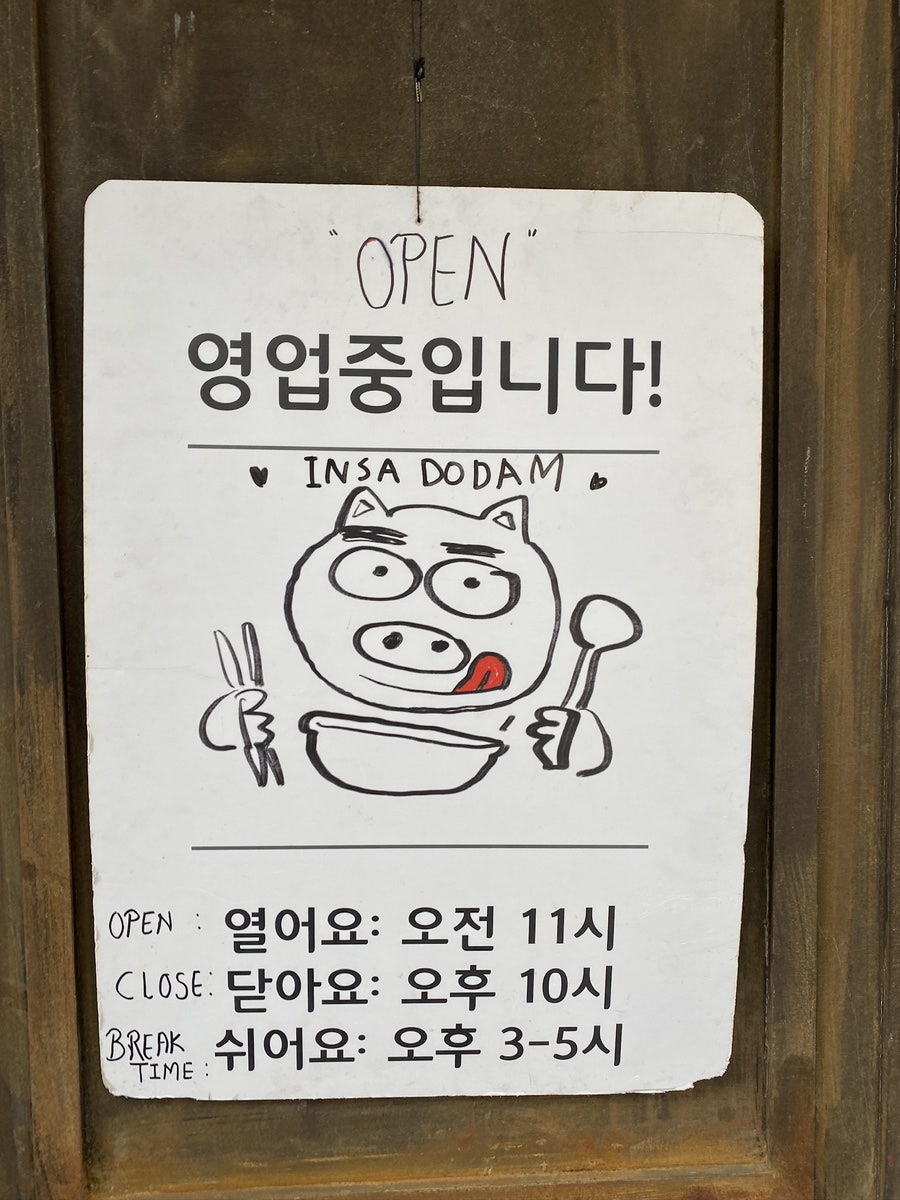 "OPEN"
영업중입니다!
♥ INSA DODAM ♥
OPEN : 열어요: 오전 11시
CLOSE: 닫아요: 오후 10시
BREAK TIME : 쉬어요: 오후 3-5시